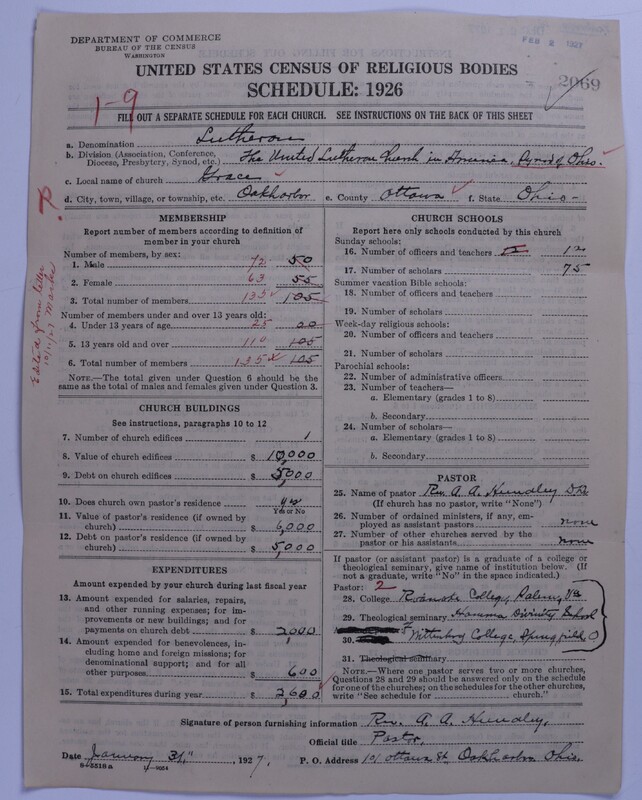 DEPARTMENT OF COMMERCE
BUREAU OF THE CENSUS
WASHINGTON
FEB 2 1927
UNITED STATES CENSUS OF RELIGIOUS BODIES
SCHEDULE: 1926
2069
1-9
FILL OUT A SEPARATE SCHEDULE FOR EACH CHURCH. SEE INSTRUCTIONS ON THE BACK OF THIS SHEET
a. Denomination Lutheran
b. Division (Association, Conference, Diocese, Presbytery, Synod, etc.) The United Lutheran Church in America, Synod of Ohio.
c. Local name of church Grace
d. City, town, village, or township, etc. Oakharbor e. County Ottawa f. State Ohio
MEMBERSHIP
Report number of members according to definition of member in your church
Number of members, by sex:
1. Male 72 50
2. Female 63 55
3. Total number of members 135 105
Number of members under and over 13 years old:
4. Under 13 years of age 25 00
5. 13 years old and over 110 105
6. Total number of members 135 105
NOTE.—The total given under Question 6 should be the same as the total of males and females given under Question 3.
Edited from letter
CHURCH BUILDINGS
See instructions, paragraphs 10 to 12
7. Number of church edifices 1
8. Value of church edifices $ 10,000
9. Debt on church edifices $ 5,000
10. Does church own pastor's residence yes
Yes or No
11. Value of pastor's residence (if owned by church) $ 6,000
12. Debt on pastor's residence (if owned by church) $ 5,000
EXPENDITURES
Amount expended by your church during last fiscal year
13. Amount expended for salaries, repairs, and other running expenses; for improvements or new buildings; and for payments on church debt $ 2,000
14. Amount expended for benevolences, including home and foreign missions; for denominational support; and for all other purposes $ 600
15. Total expenditures during year $ 2,600
CHURCH SCHOOLS
Report here only schools conducted by this church
Sunday schools:
16. Number of officers and teachers 12
17. Number of scholars 75
Summer vacation Bible schools:
18. Number of officers and teachers
19. Number of scholars
Week-day religious schools:
20. Number of officers and teachers
21. Number of scholars
Parochial schools:
22. Number of administrative officers
23. Number of teachers—
a. Elementary (grades 1 to 8)
b. Secondary
24. Number of scholars—
a. Elementary (grades 1 to 8)
b. Secondary
PASTOR
25. Name of pastor Rev. A. A. Hundley
(If church has no pastor, write "None")
26. Number of ordained ministers, if any, employed as assistant pastors none
27. Number of other churches served by the pastor or his assistants none
If pastor (or assistant pastor) is a graduate of a college or theological seminary, give name of institution below. (If not a graduate, write "No" in the space indicated.)
Pastor: 2
28. College Roanoke College, Salem, Va
29. Theological seminary Hamma Divinity School
30. Wittenberg College, Springfield, O
31. Theological seminary
NOTE.—Where one pastor serves two or more churches, Questions 28 and 29 should be answered only on the schedule for one of the churches; on the schedules for the other churches, write "See schedule for church."
Signature of person furnishing information Rev. A. A. Hundley,
Official title Pastor,
Date January 31", 1927. P. O. Address 101 Ottawa St, Oakharbor Ohio.